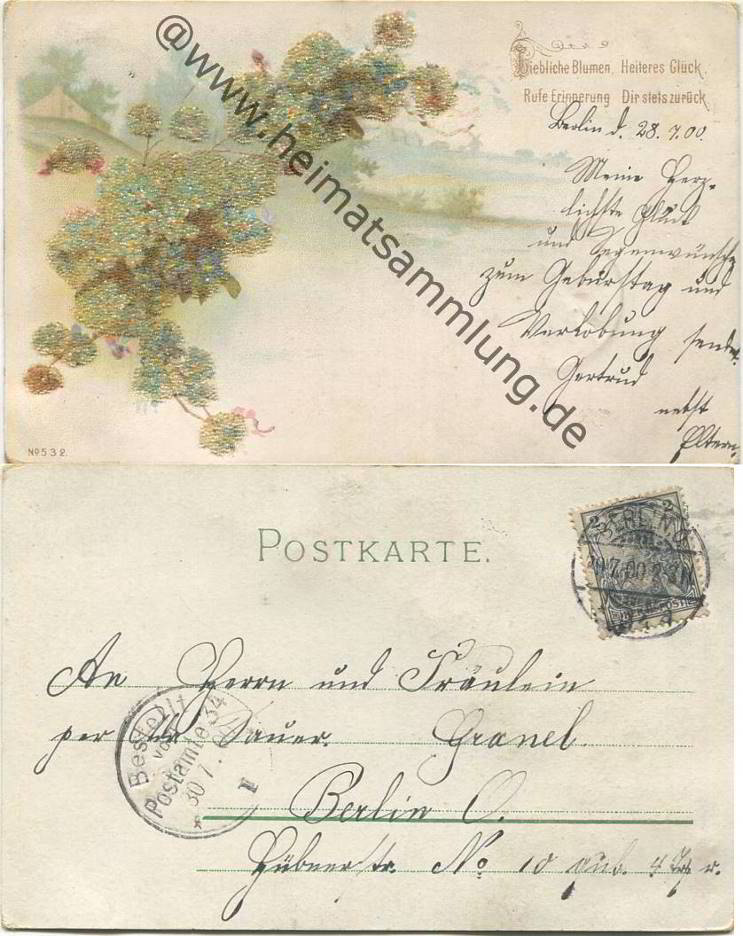 Liebliche Blumen, Heiteres Glück,
Rufe Erinnerung Dir stets zurück.
Berlin d. 28.7.00.
Meine Herz-
lichste Glück
und Segenwünsche
zum Geburstag und
Verlobung sendet
Gertrud
nebst
Eltern.
@www.heimatsammlung.de
No 532.
POSTKARTE.
BERLIN
30.7.00
An Herrn und Fräulein
per Sauer. Granel.
Berlin O.
Hübnerstr. No 10 4 Tr r.
Bestellt
vom
Postamte 34
30 7.